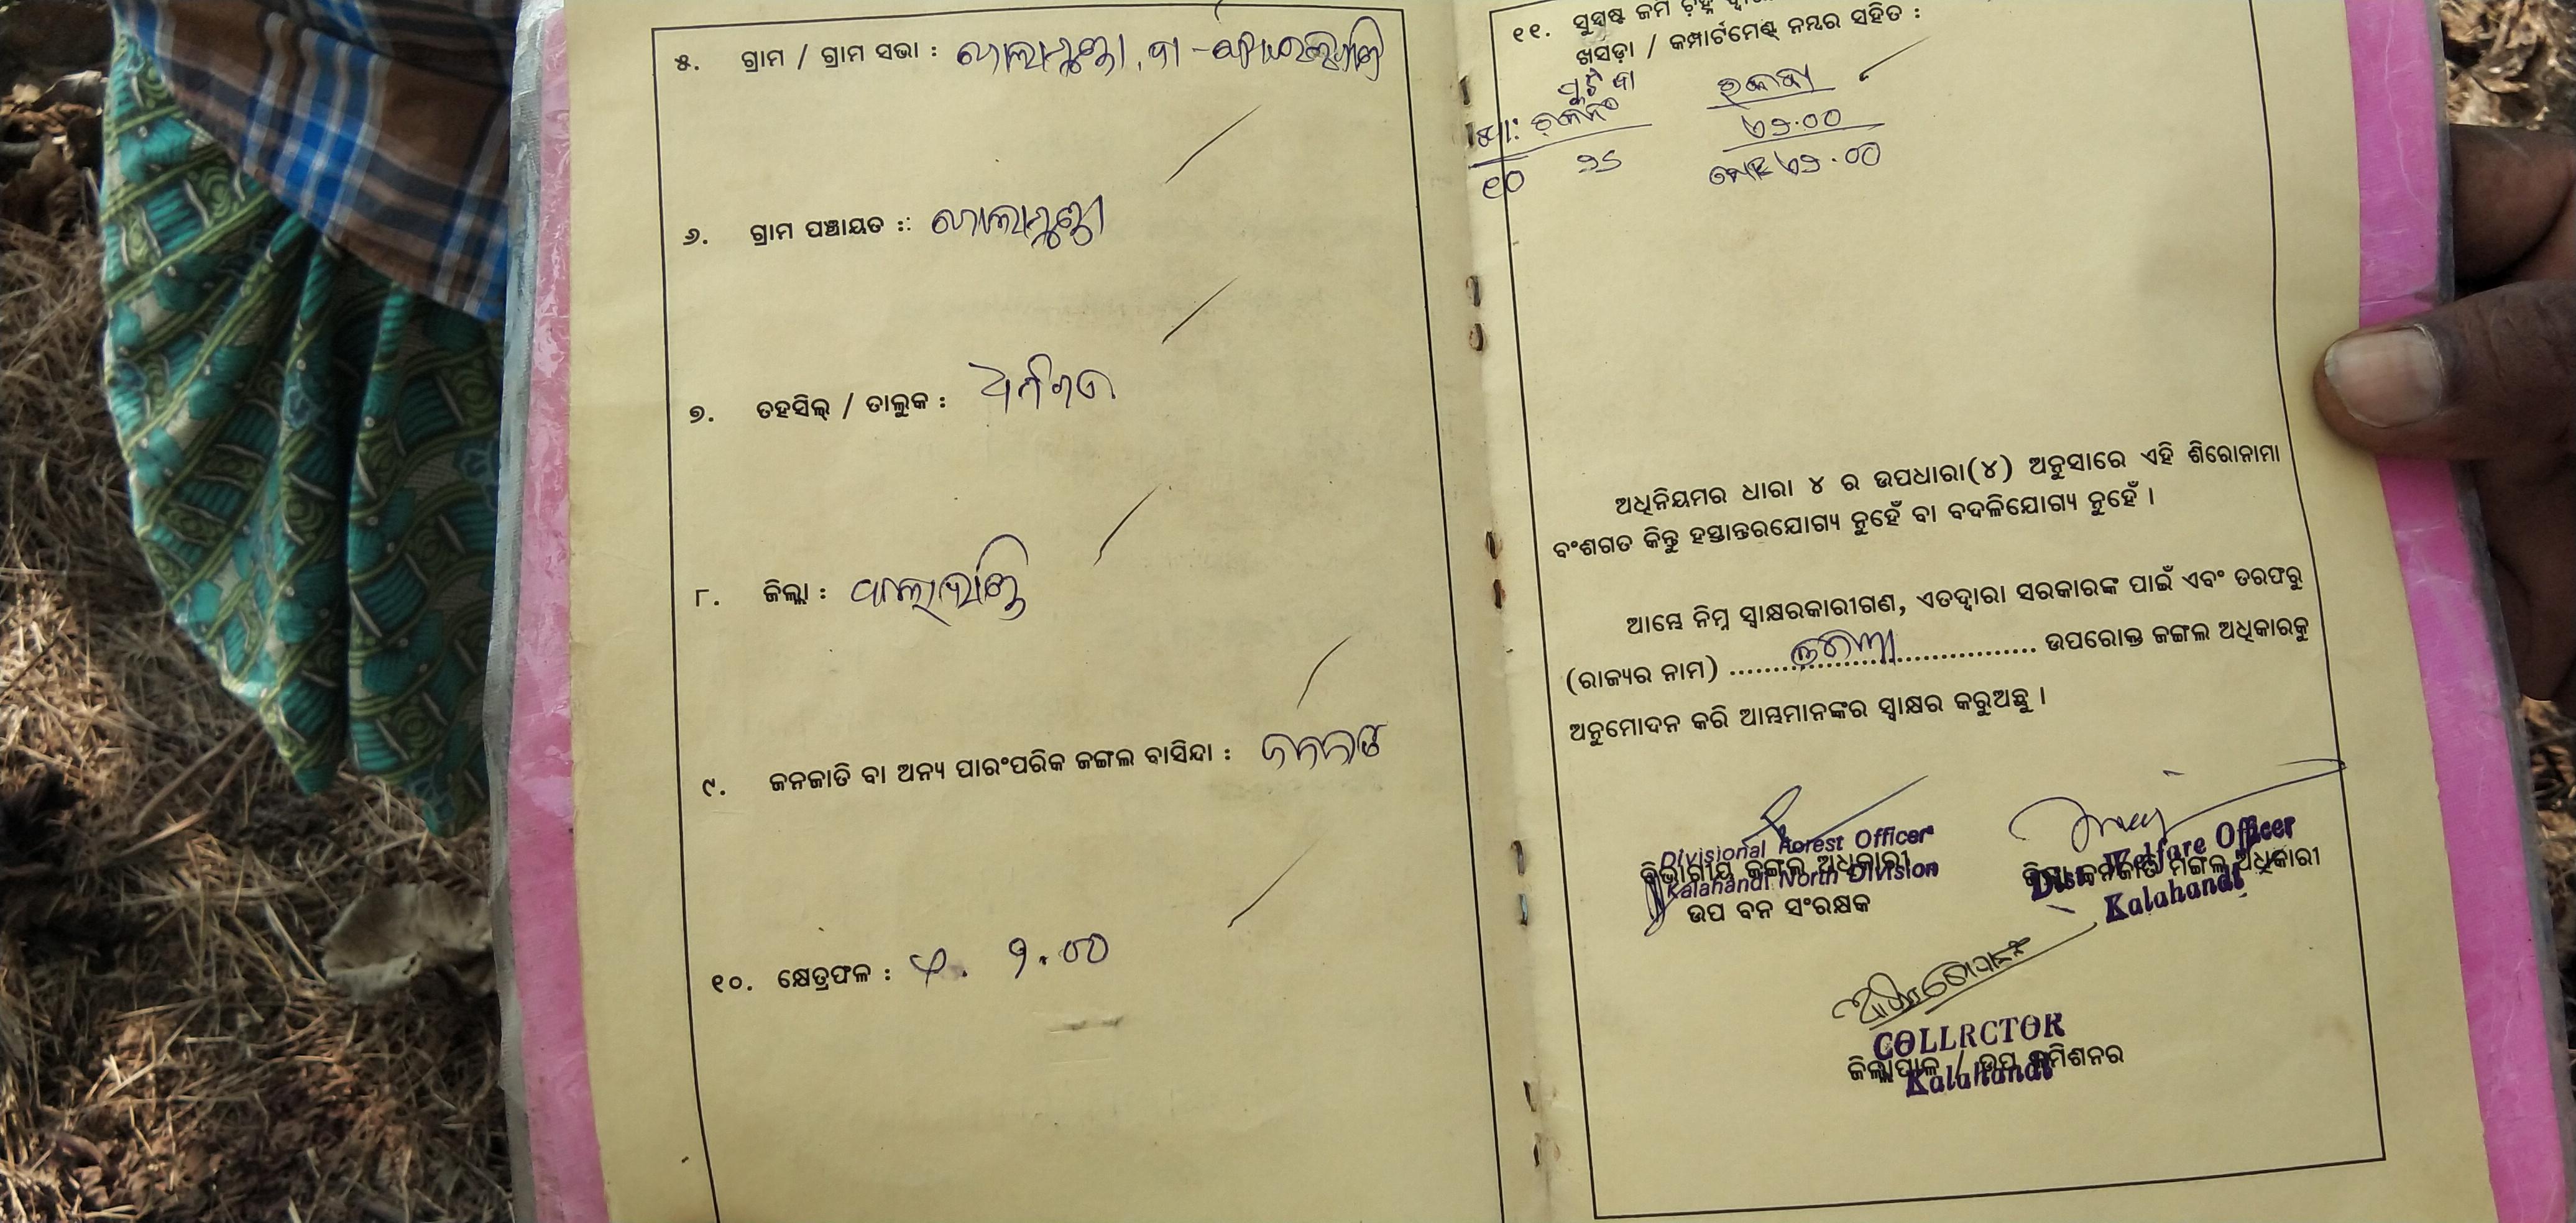 ୫. ଗ୍ରାମ / ଗ୍ରାମ ସଭା :
୬. ଗ୍ରାମ ପଞ୍ଚାୟତ :
୭. ତହସିଲ୍ / ତାଲୁକ :
୮. ଜିଲ୍ଲା : କଳାହାଣ୍ଡି
୯. ଜନଜାତି ବା ଅନ୍ୟ ପାରଂପରିକ ଜଙ୍ଗଲ ବାସିନ୍ଦା : ଜନଜାତି
୧୦. କ୍ଷେତ୍ରଫଳ : ଏ. ୨.୦୦
୧୧. ସୁସ୍ପଷ୍ଟ ଜମି ଚିହ୍ନ
ଖସଡ଼ା / କମ୍ପାର୍ଟମେଣ୍ଟ୍ ନମ୍ବର ସହିତ :
ପ୍ଲଟ ବା ରକବା
ଏ୨.୦୦
୧୦ ୨୬ ମୋଟ ଏ୨.୦୦
ଅଧିନିୟମର ଧାରା ୪ ର ଉପଧାରା(୪) ଅନୁସାରେ ଏହି ଶିରୋନାମା
ବଂଶଗତ କିନ୍ତୁ ହସ୍ତାନ୍ତରଯୋଗ୍ୟ ନୁହେଁ ବା ବଦଳିଯୋଗ୍ୟ ନୁହେଁ ।
ଆମ୍ଭେ ନିମ୍ନ ସ୍ୱାକ୍ଷରକାରୀଗଣ, ଏତଦ୍ୱାରା ସରକାରଙ୍କ ପାଇଁ ଏବଂ ତରଫରୁ
(ରାଜ୍ୟର ନାମ) ............ ଓଡିଶା ............ ଉପରୋକ୍ତ ଜଙ୍ଗଲ ଅଧିକାରକୁ
ଅନୁମୋଦନ କରି ଆମ୍ଭମାନଙ୍କର ସ୍ୱାକ୍ଷର କରୁଅଛୁ ।
Divisional Forest Officer
ବିଭାଗୀୟ ଜଙ୍ଗଲ ଅଧିକାରୀ
Kalahandi North Division
ଉପ ବନ ସଂରକ୍ଷକ
Dist. Welfare Officer
ଜିଲ୍ଲା ଜନଜାତି ମଙ୍ଗଳ ଅଧିକାରୀ
Kalahandi
COLLRCTOR
ଜିଲ୍ଲାପାଳ / ଉପ କମିଶନର
Kalahandi